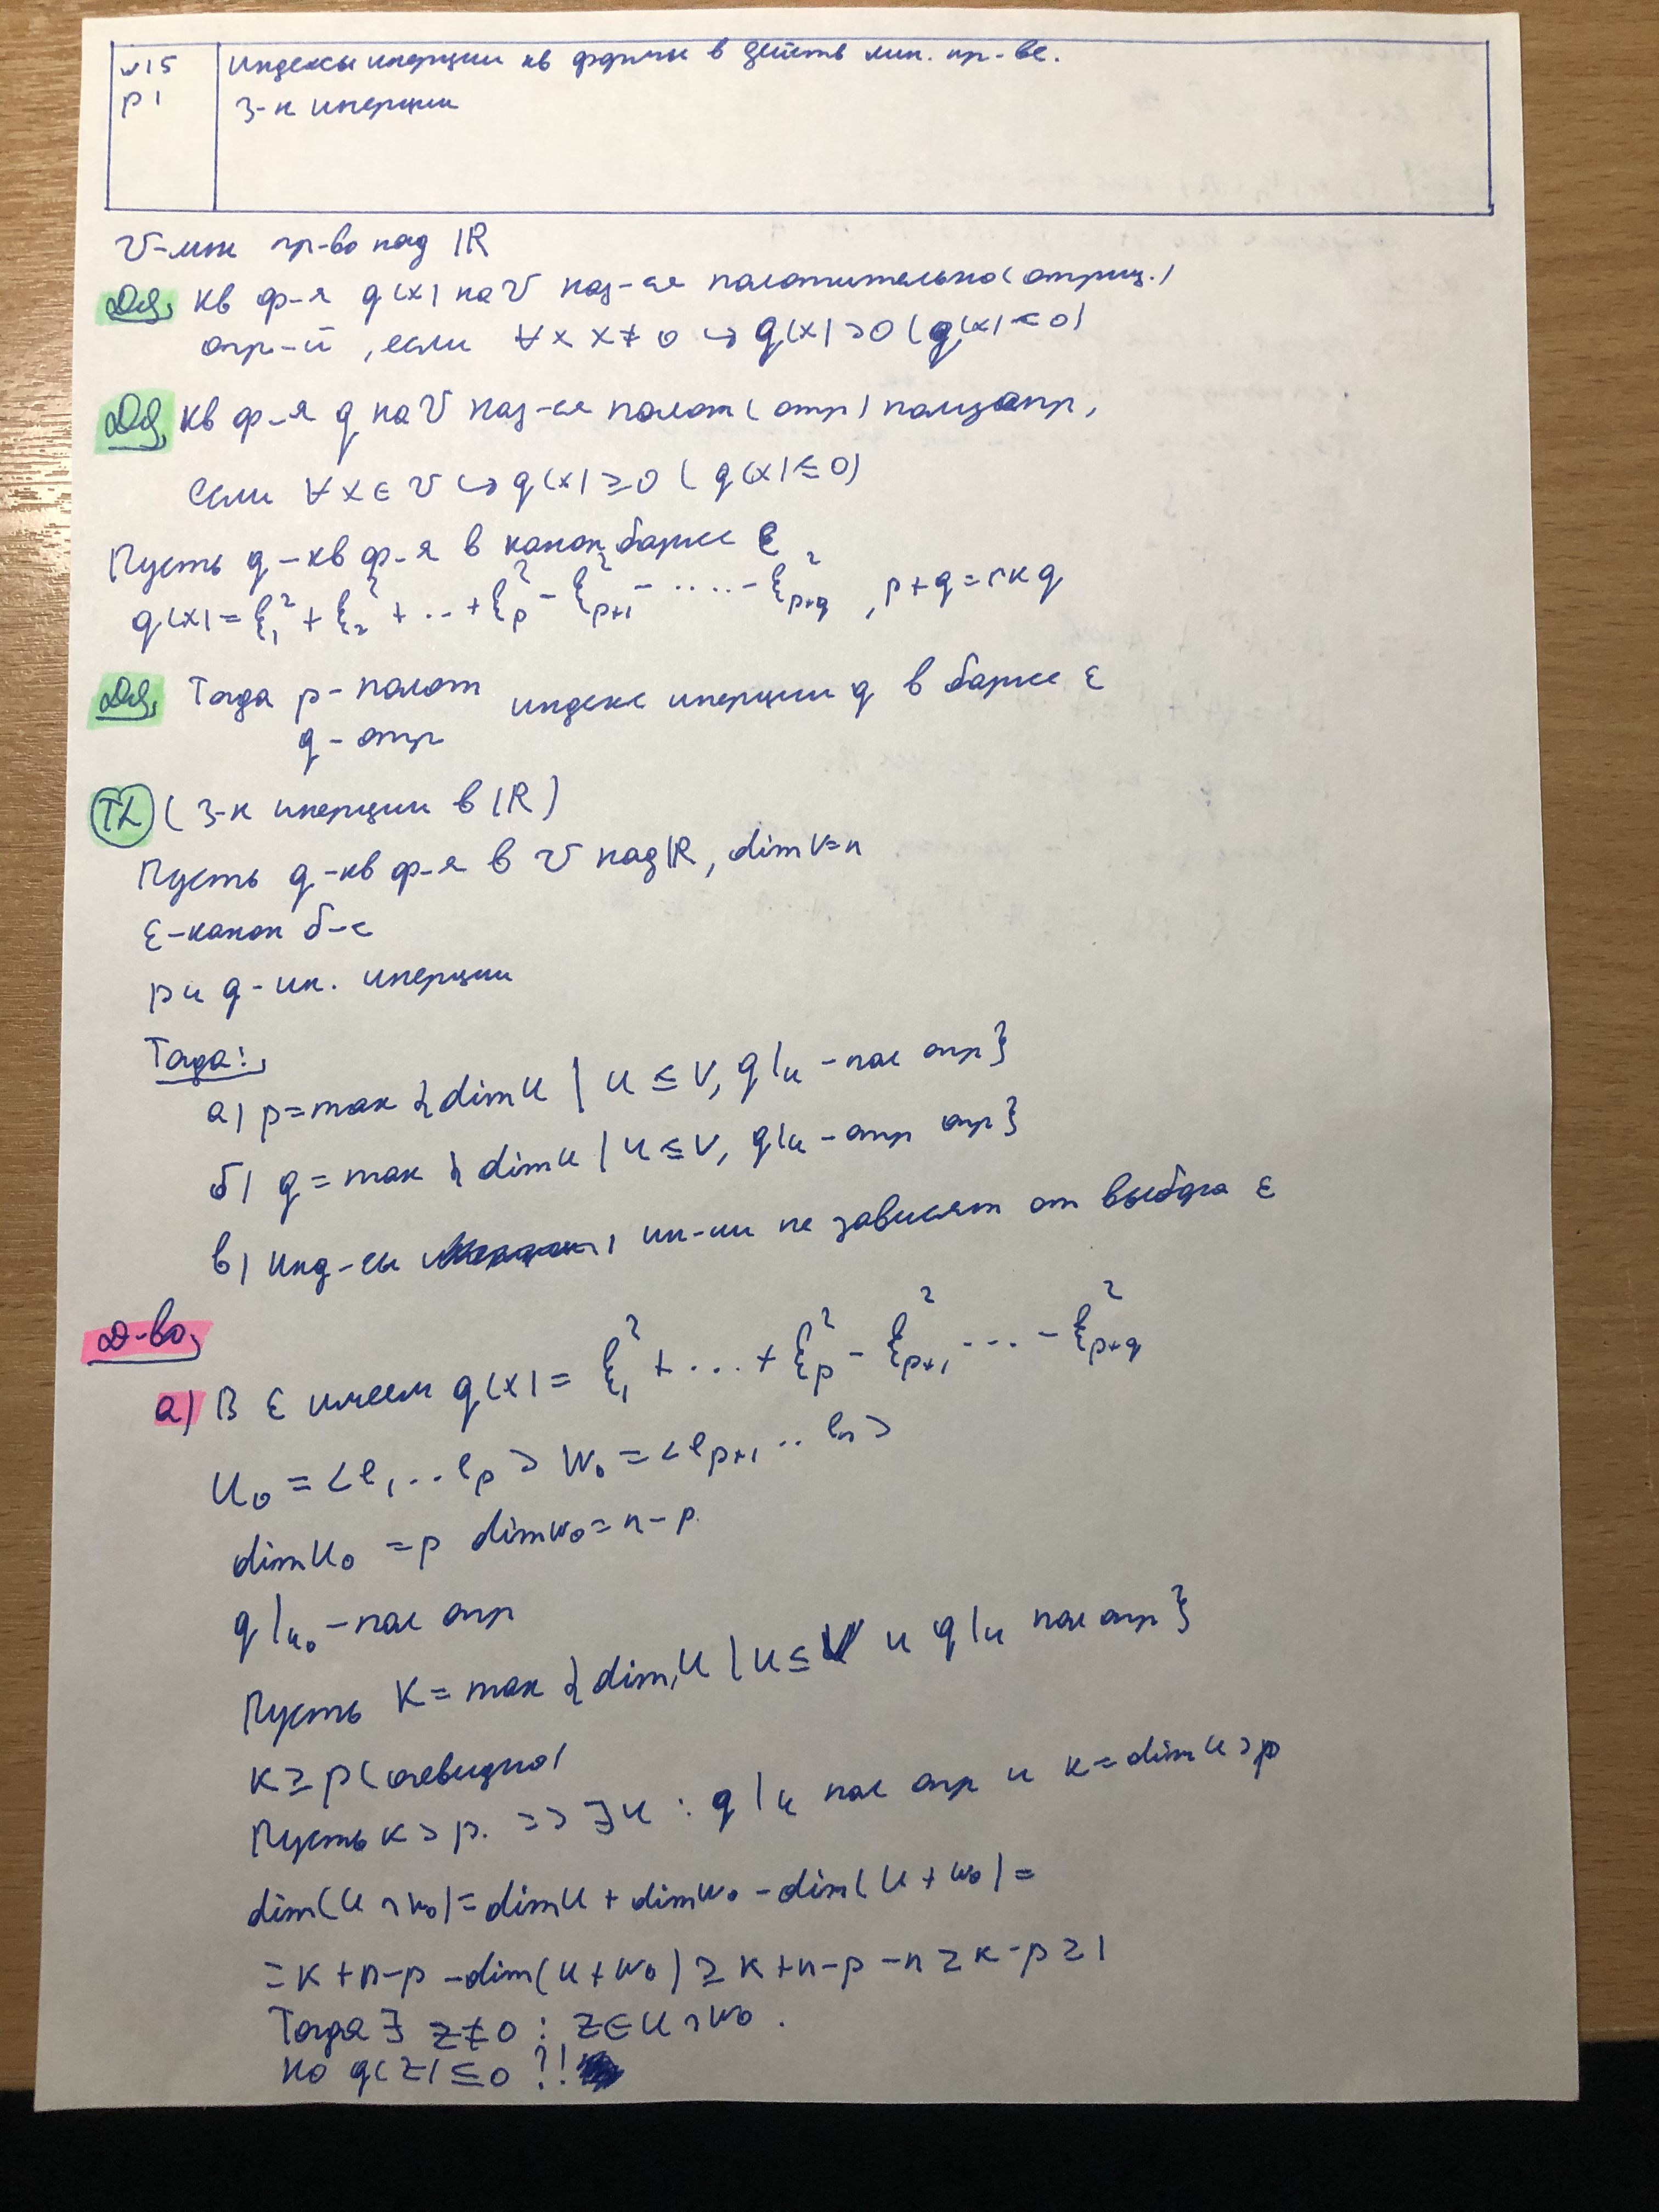 №15
р1
Индексы инерции кв формы в действ лин. пр-ве.
З-н инерции
V-лин пр-во над ℝ
Def, Кв ф-я q(x) на V наз-ся положительно (отриц.)
опр-й, если ∀x x≠0 ↪ q(x)>0 (q(x)<0)
Def, Кв ф-я q на V наз-ся полож (отр) полуопр,
Если ∀x∈V ↪ q(x)≥0 (q(x)≤0)
Пусть q-кв ф-я в канон базисе ε
q(x)=ξ₁²+ξ₂²+...+ξₚ²-ξₚ₊₁²-....-ξ²ₚ₊q, p+q=rkq
Def, Тогда p-полож индекс инерции q в базисе ε
q-отр
Th (З-н инерции в ℝ)
Пусть q-кв ф-я в V над ℝ, dimV=n
ε-канон б-с
p и q-ин. инерции
Тогда:
а) p=max{dimU | U≤V, q|ᵤ-пол опр}
б) q=max{dimU | U≤V, q|ᵤ-отр опр}
в) Инд-сы ин-ии не зависят от выбора ε
Д-во,
а) В ε имеем q(x)=ξ₁²+...+ξₚ²-ξₚ₊₁²-...-ξ²ₚ₊q
U₀=<e₁...eₚ> W₀=<eₚ₊₁..eₙ>
dimU₀=p dimW₀=n-p.
q|ᵤ₀-пол опр
Пусть K=max{dimU | U≤V и q|ᵤ пол опр}
K≥p (очевидно)
Пусть K>p. => ∃U : q|ᵤ пол опр и k=dimU>p
dim(U∩W₀)=dimU+dimW₀-dim(U+W₀)=
=K+n-p-dim(U+W₀)≥K+n-p-n≥K-p≥1
Тогда ∃ z≠0 : z∈U∩W₀.
Но q(z)≤0 ?!